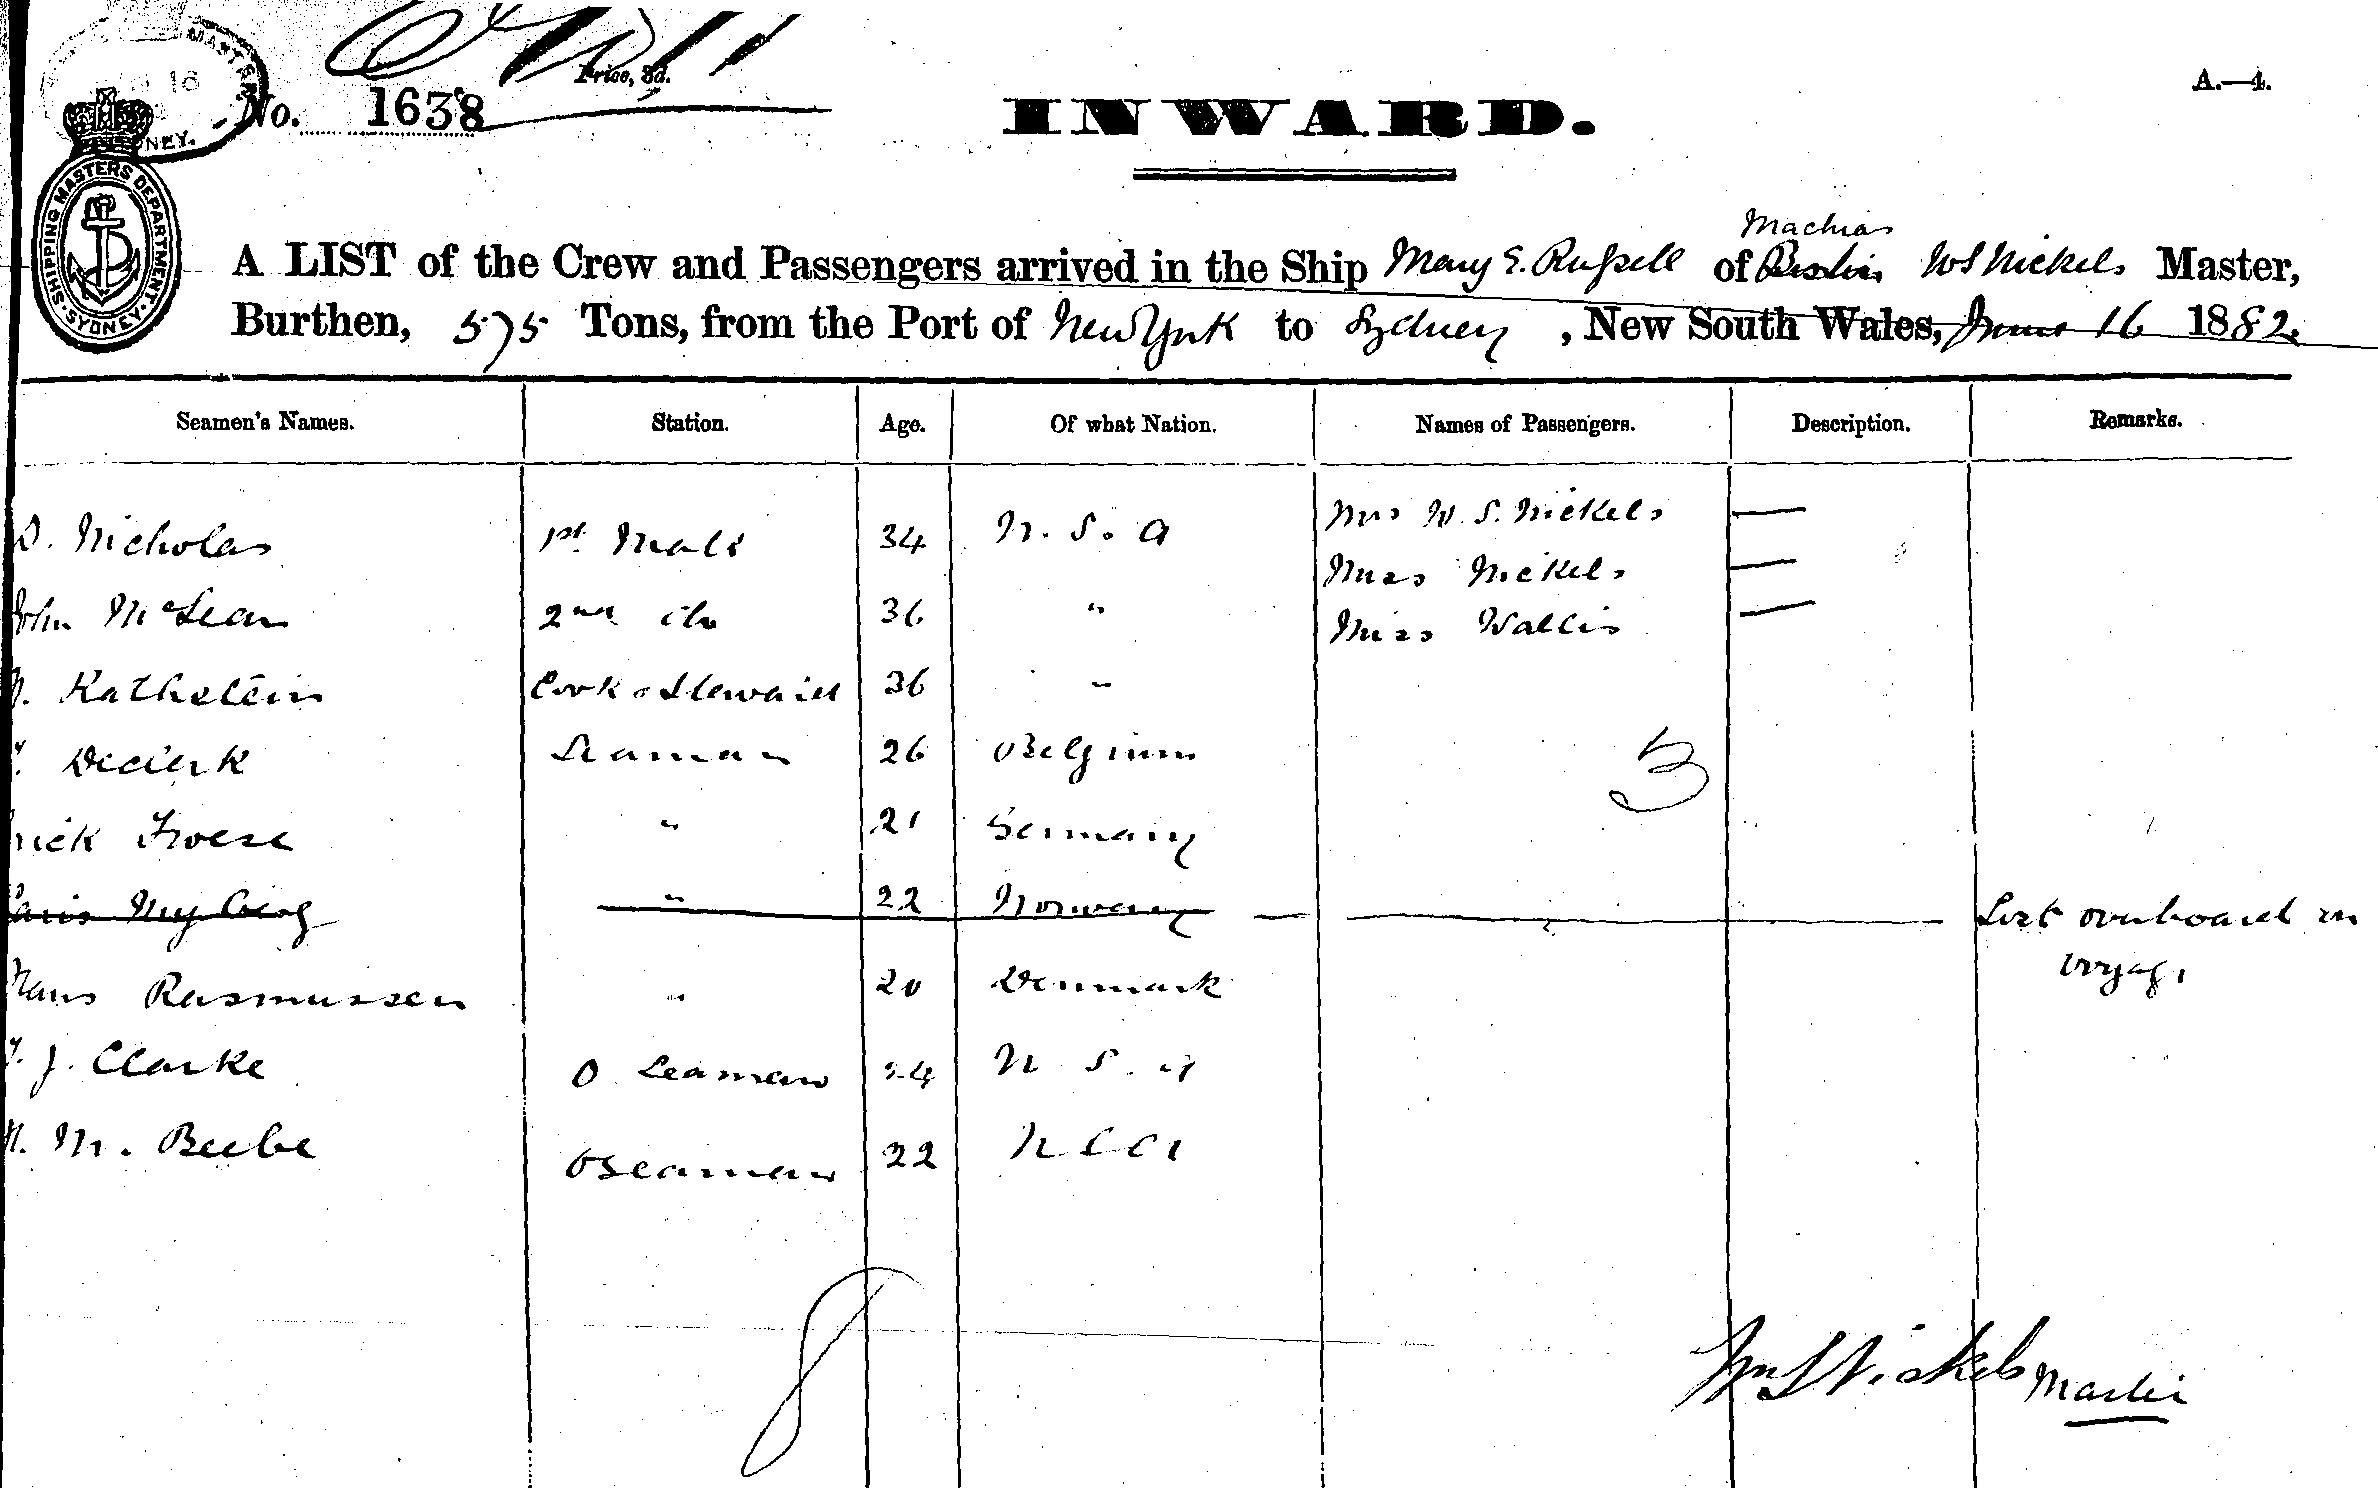 MASTER
16
SYDNEY.
Price, 3d.
No. 1638
A.—4.
INWARD.
SHIPPING MASTERS DEPARTMENT. SYDNEY.
Machias
A LIST of the Crew and Passengers arrived in the Ship Mary E. Russell of Boston W S Nickels Master,
Burthen, 575 Tons, from the Port of New York to Sydney, New South Wales, June 16 1882.
Seamen's Names. Station. Age. Of what Nation. Names of Passengers. Description. Remarks.
D. Nicholas 1st Mate 34 U. S. A Mrs W. S. Nickels —
Miss Nickels —
John McLean 2nd do 36 " Miss Wallis —
Kathstein Cook & Steward 36 "
Declerk Seaman 26 Belgium
3
rick Froese " 21 Germany
Myberg " 22 Norway — Lost overboard on
voyage
Hans Rasmussen " 20 Denmark
J. Clarke O Seaman 24 U. S. A
M. Beebe O Seaman 22 U S A
8
Wm S Nickels Master